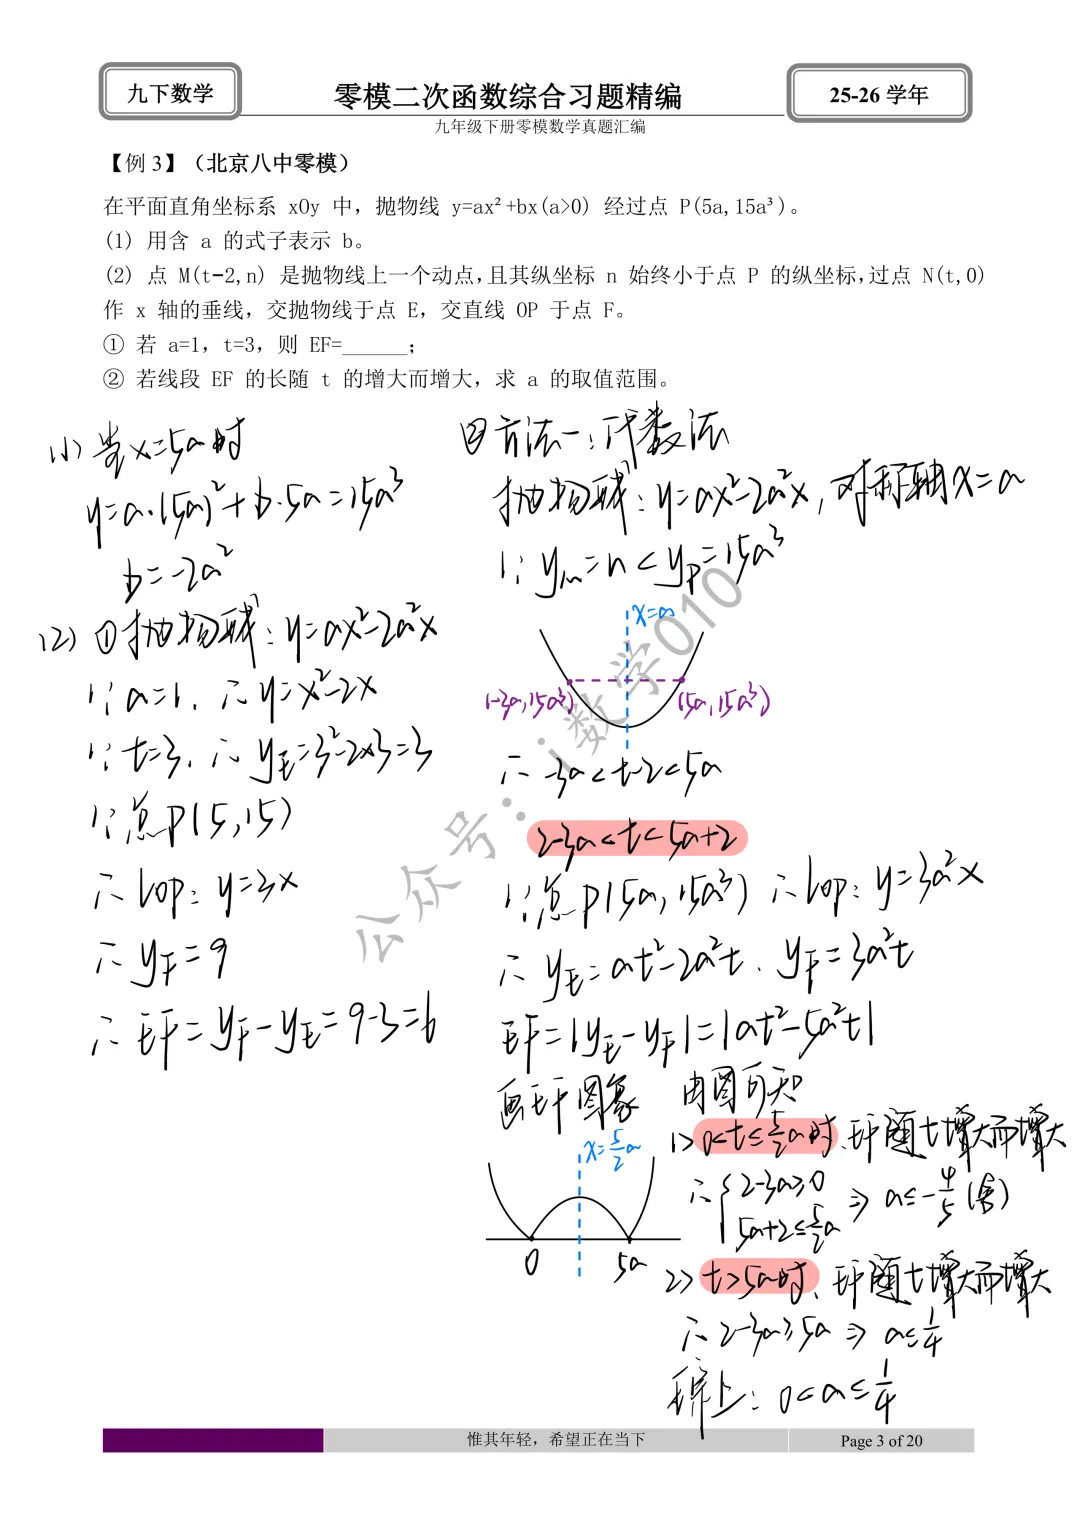 九下数学
零模二次函数综合习题精编
25-26 学年
九年级下册零模数学真题汇编
【例 3】（北京八中零模）
在平面直角坐标系 xOy 中，抛物线 y=ax²+bx(a>0) 经过点 P(5a,15a³)。
(1) 用含 a 的式子表示 b。
(2) 点 M(t−2,n) 是抛物线上一个动点,且其纵坐标 n 始终小于点 P 的纵坐标,过点 N(t,0)
作 x 轴的垂线，交抛物线于点 E，交直线 OP 于点 F。
① 若 a=1，t=3，则 EF=______；
② 若线段 EF 的长随 t 的增大而增大，求 a 的取值范围。
(1) 当x=5a时
y=a·(5a)²+b·5a=15a³
b=-2a²
(2) ①抛物线：y=ax²-2a²x
∵a=1, ∴y=x²-2x
∵t=3, ∴yE=3²-2×3=3
∵点P(5,15)
∴lop: y=3x
∴yF=9
∴EF=yF-yE=9-3=6
②方法一：代数法
抛物线：y=ax²-2a²x, 对称轴x=a
∵yM=n<yP=15a³
x=a
(-3a,15a³)
(5a,15a³)
∴-3a<t-2<5a
2-3a<t<5a+2
∵点P(5a,15a³) ∴lop: y=3a²x
∴yE=at²-2a²t, yF=3a²t
EF=|yE-yF|=|at²-5a²t|
画EF图象
x=5/2a
0
5a
由图可知
1> 0<t≤5/2a时, EF随t增大而增大
∴{2-3a≥0
5a+2≤5/2a
⇒ a≤-4/5 (舍)
2> t>5a时, EF随t增大而增大
∴2-3a≥5a ⇒ a≤1/4
综上：0<a≤1/4
公众号：i数学010
惟其年轻，希望正在当下
Page 3 of 20